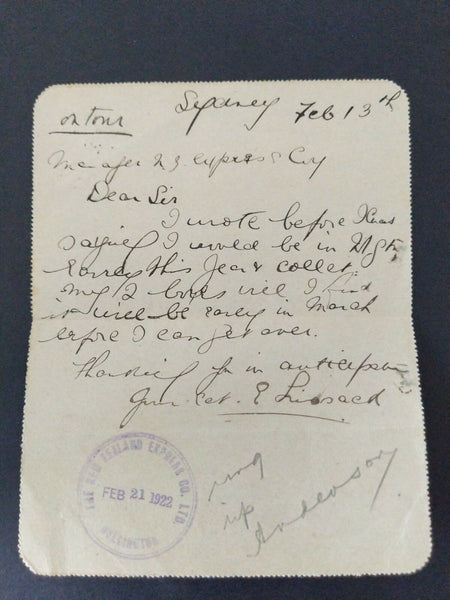 on tour
Sydney Feb 13th
Manager N Z Express Coy
Dear Sir
I wrote before Xmas
saying I would be in
early this Year & collet
my 2 boxes well I find
it will be early in March
before I can get over.
Thanking you in
E
THE NEW ZEALAND EXPRESS CO. LTD.
FEB 21 1922
WELLINGTON
ring
up
Anderson